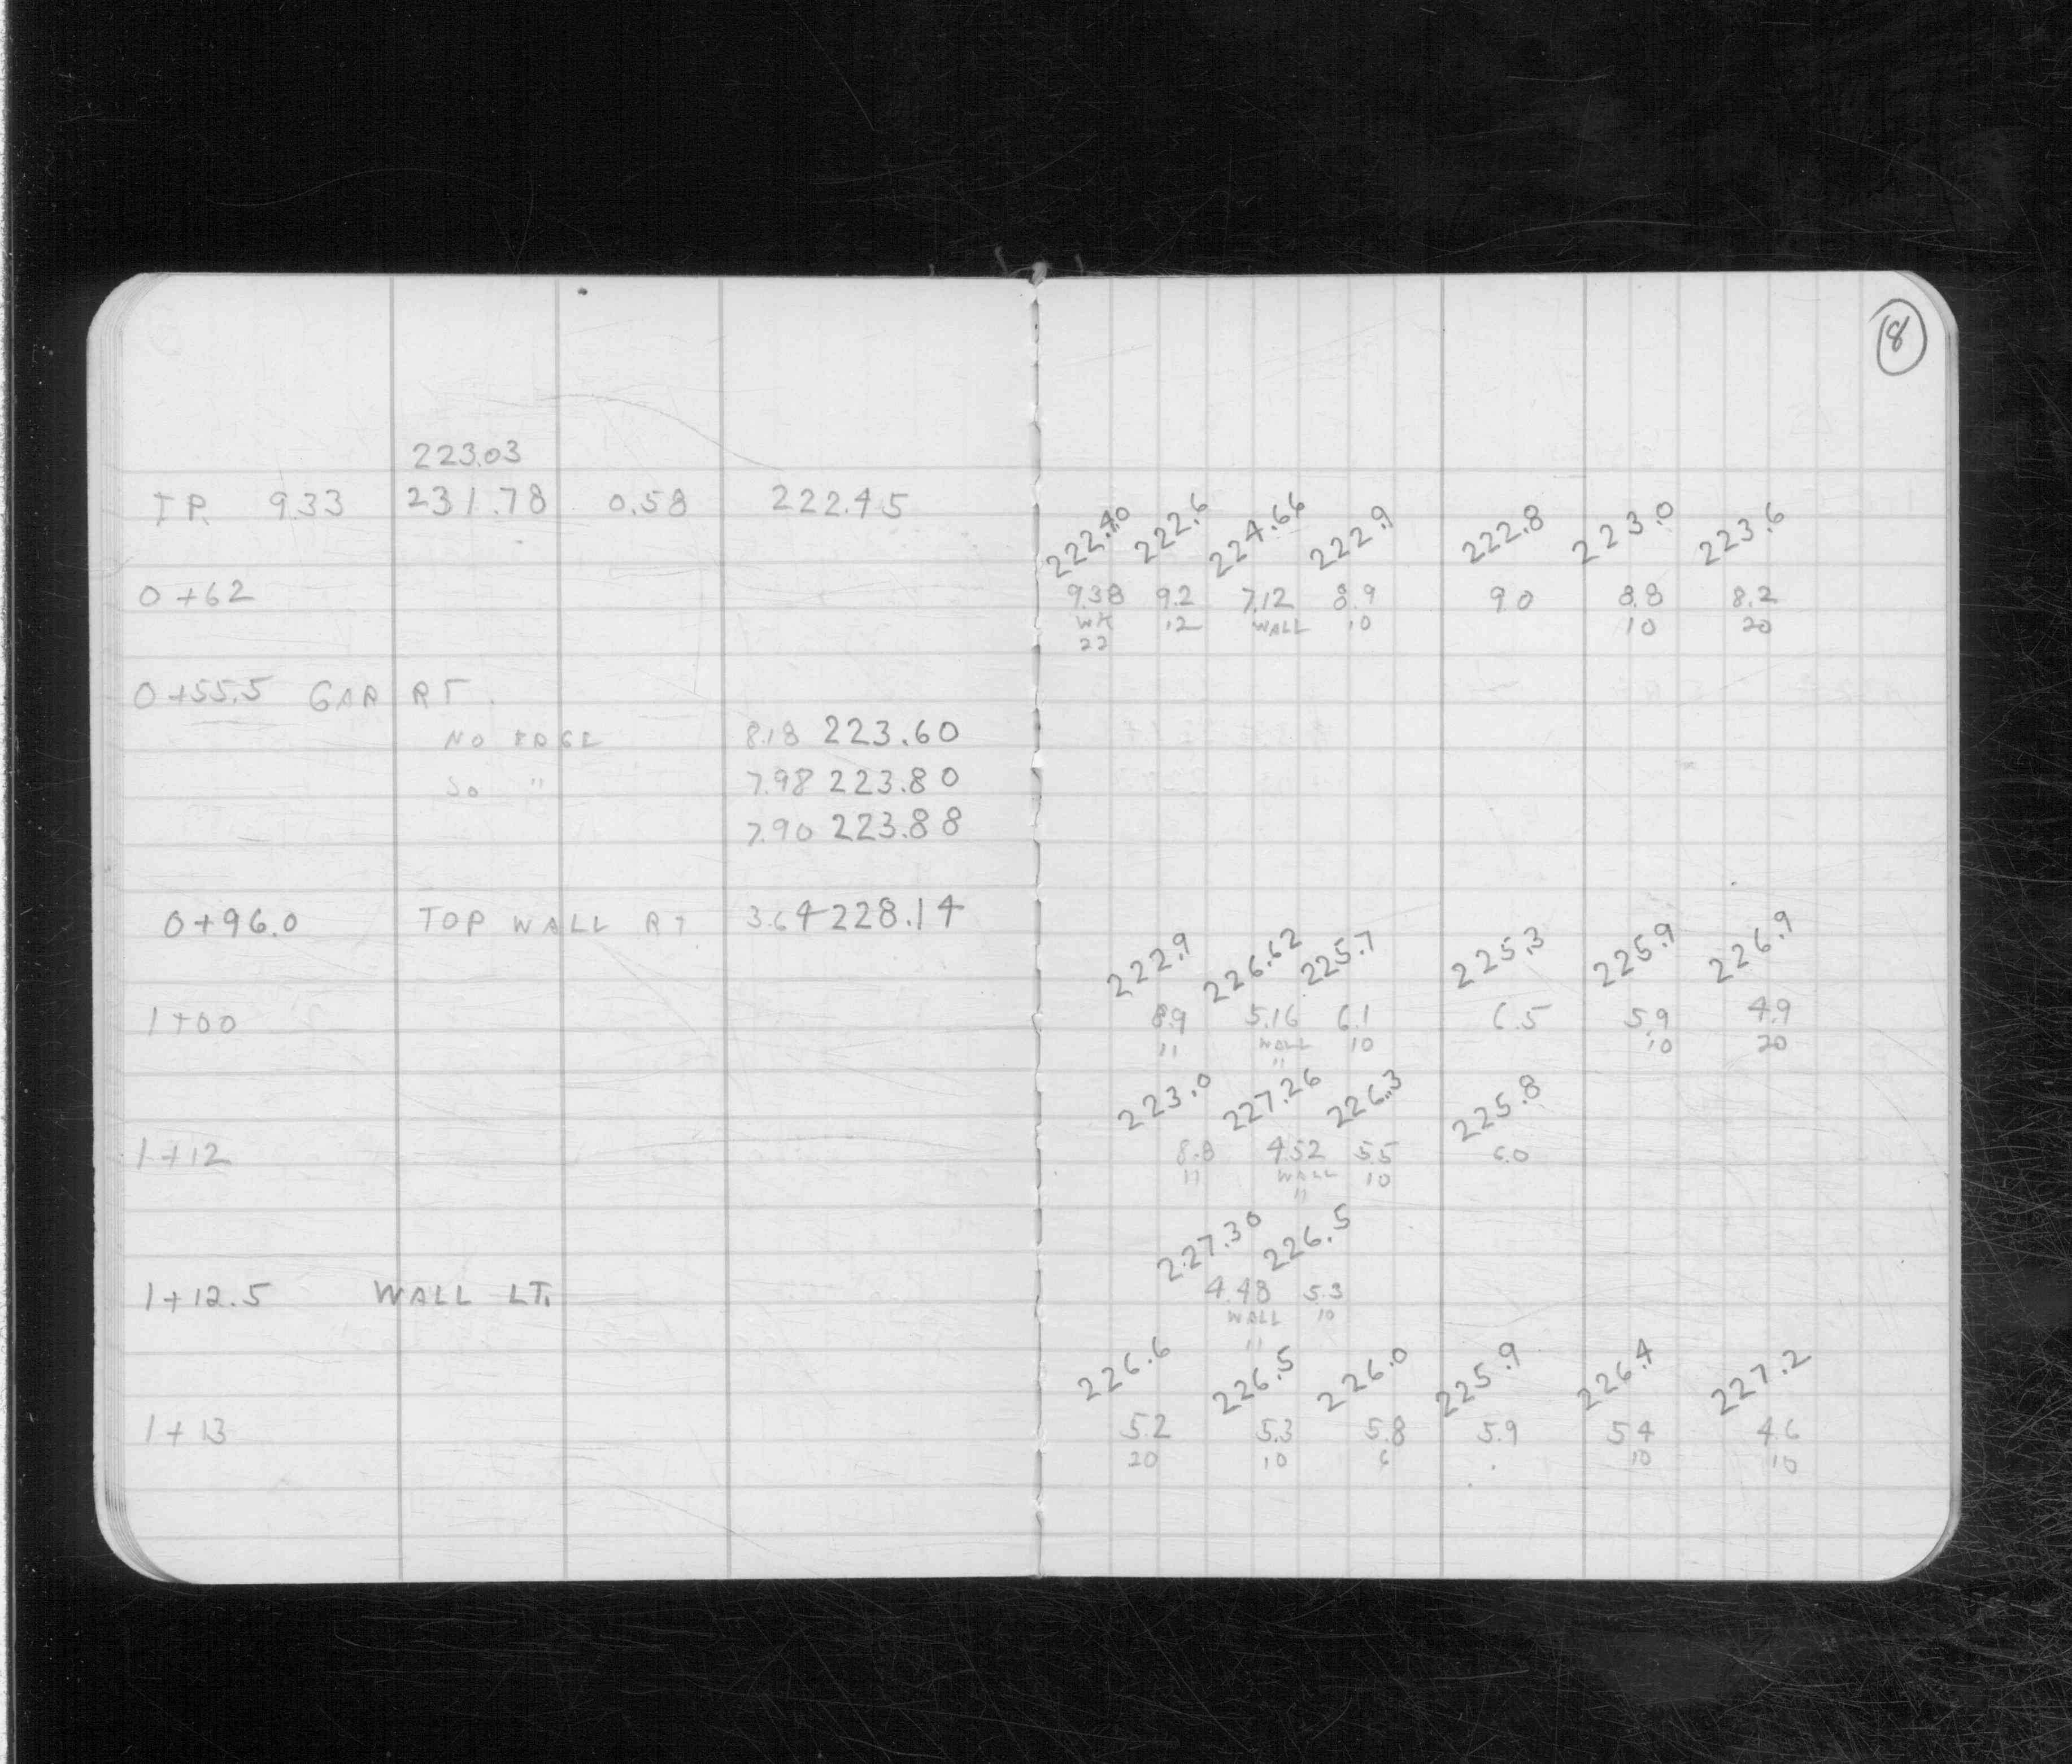 8
223.03
T.P. 9.33 231.78 0.58 222.45
222.40 222.6 224.66 222.9 222.8 223.0 223.6
0+62 9.38 9.2 7.12 8.9 9.0 8.8 8.2
WK 12 WALL 10 10 20
22
0+55.5 GAR RT.
NO EDGE 8.18 223.60
SO " 7.98 223.80
7.90 223.88
0+96.0 TOP WALL RT 3.64 228.14
222.9 226.62 225.7 225.3 225.9 226.9
1+00 8.9 5.16 6.1 6.5 5.9 4.9
11 WALL 10 10 20
11
223.0 227.26 226.3 225.8
1+12 8.8 4.52 5.5 6.0
11 WALL 10
11
227.30 226.5
1+12.5 WALL LT. 4.48 5.3
WALL 10
11
226.6 226.5 226.0 225.9 226.4 227.2
1+13 5.2 5.3 5.8 5.9 5.4 4.6
20 10 6 10 10